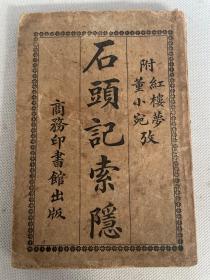 附紅樓夢攷
董小宛攷
石頭記索隱
商務印書館出版